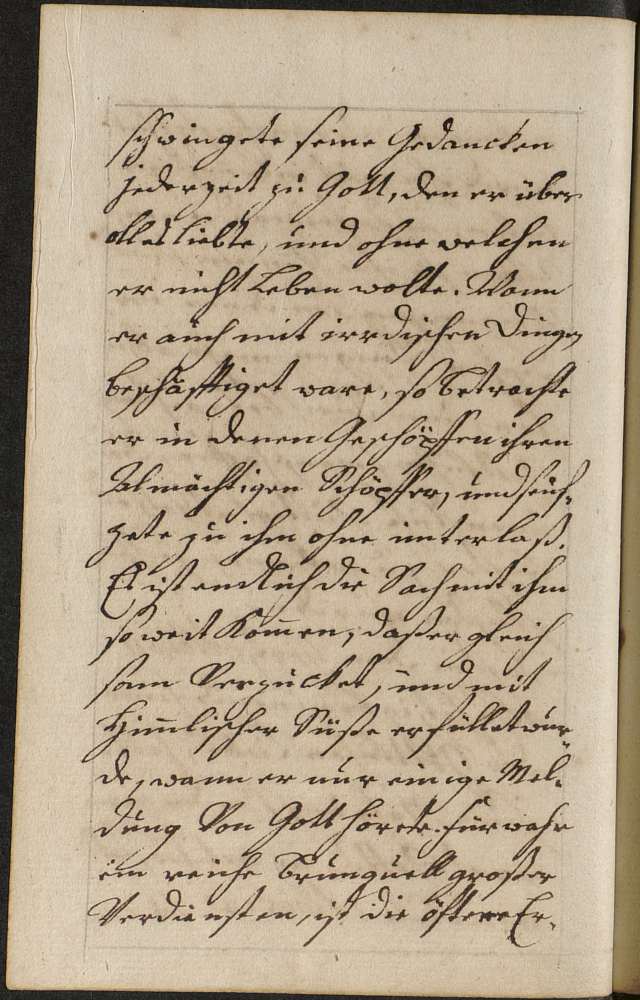 schwingete seine Gedancken
jederzeit zu Gott, den er über
alles liebte, und ohne welchen
er nicht Leben wolte. Wann
er auch mit irrdischen Dingen
beschäfftiget ware, so betrachte
er in denen Geschöpffen ihren
Allmächtigen Schöpffer, und seuf-
zete zu ihm ohne unterlaß.
Es ist endlich die Sach mit ihm
so weit Kom̅en, daß er gleich
sam Verzucket, und mit
Him̅lischer Süße erfüllet wur-
de, wann er nur einige Mel-
dung Von Gott hörete. Fürwahr
ein reiche Brunquell großer
Verdiensten, ist die öftere Er-